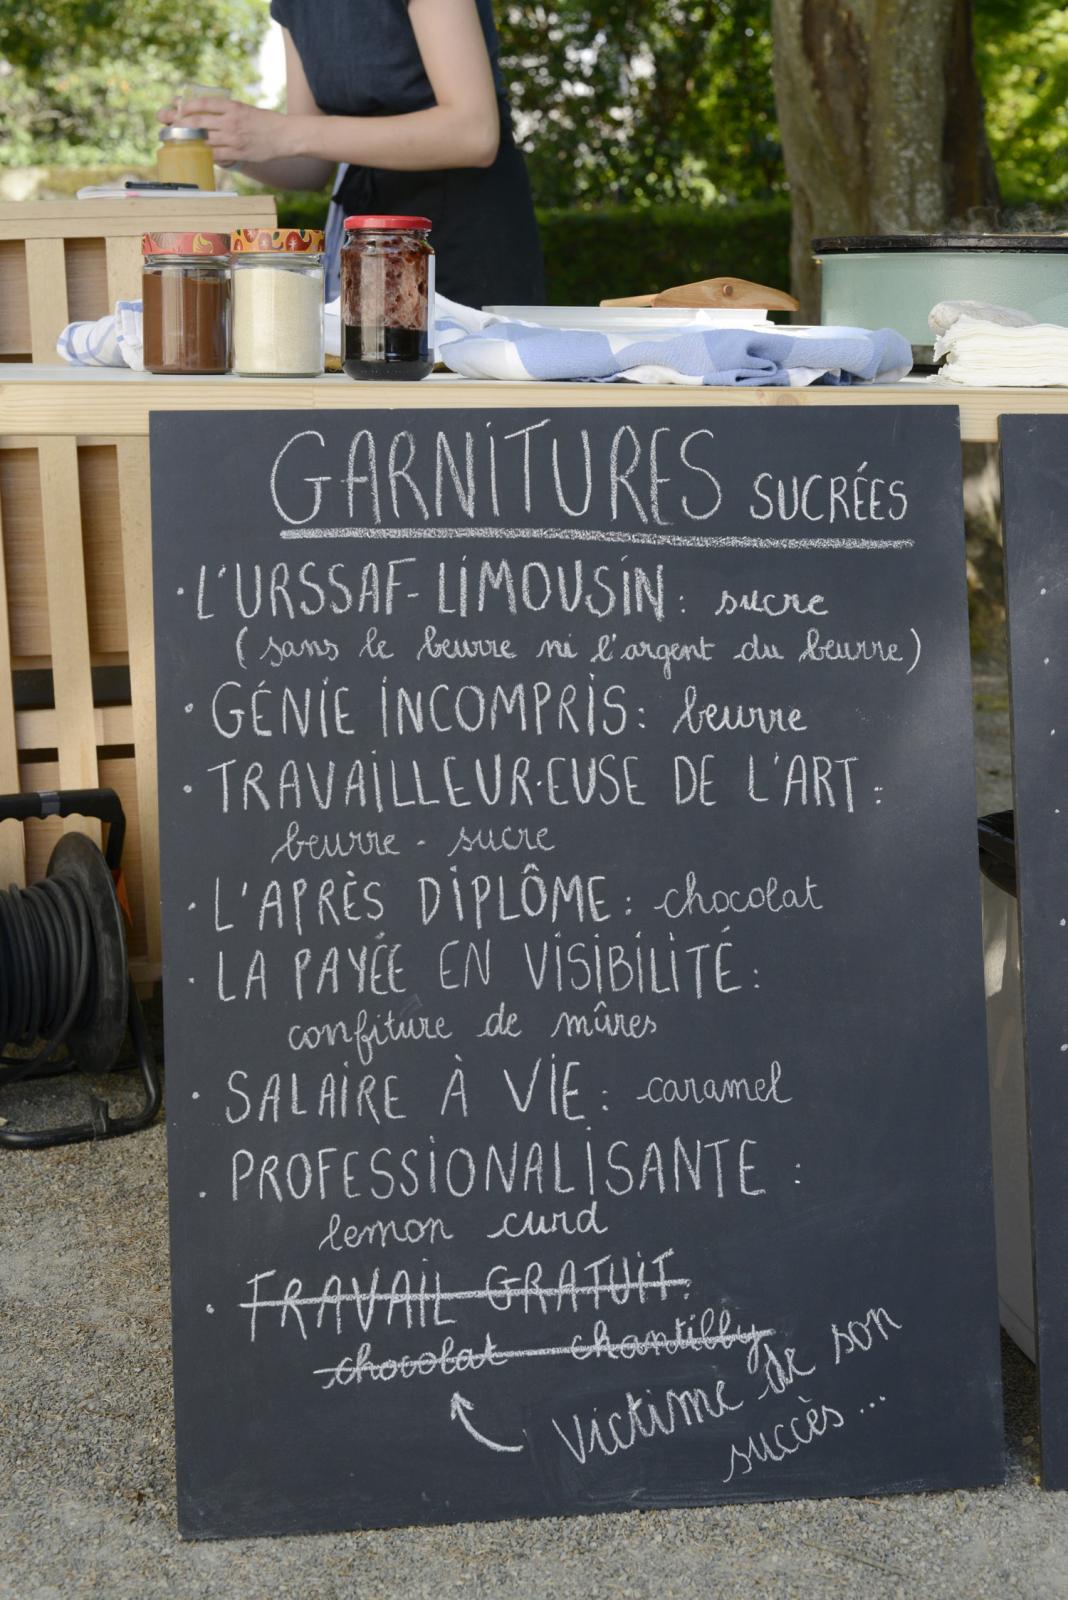 GARNITURES SUCRÉES
· L'URSSAF-LIMOUSIN : sucre
( sans le beurre ni l'argent du beurre )
· GÉNIE INCOMPRIS : beurre
· TRAVAILLEUR·EUSE DE L'ART :
beurre - sucre
· L'APRÈS DIPLÔME : chocolat
· LA PAYÉE EN VISIBILITÉ :
confiture de mûres
· SALAIRE À VIE : caramel
· PROFESSIONALISANTE :
lemon curd
· TRAVAIL GRATUIT :
chocolat chantilly
Victime de son
succès ...